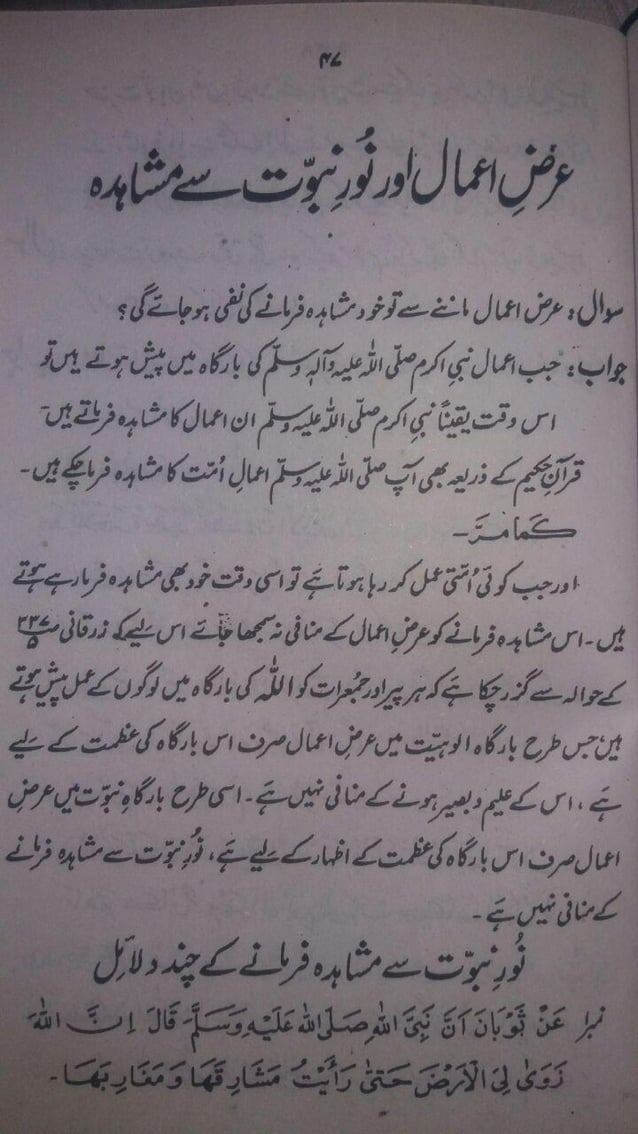 ۴۷
عرضِ اعمال اور نُورِ نبوّت سے مشاہدہ
سوال: عرض اعمال ماننے سے تو خود مشاہدہ فرمانے کی نفی ہو جائے گی؟
جواب: جب اعمال نبیِ اکرم صلّی اللہ علیہ وآلہٖ وسلّم کی بارگاہ میں پیش ہوتے ہیں تو
اس وقت یقیناً نبیِ اکرم صلّی اللہ علیہ وسلّم ان اعمال کا مشاہدہ فرماتے ہیں۔
قرآنِ حکیم کے ذریعہ بھی آپ صلّی اللہ علیہ وسلّم اعمالِ اُمّت کا مشاہدہ فرما چکے ہیں۔
کَمَا مَرَّ۔
اور جب کوئی اُمّتی عمل کر رہا ہوتا ہے تو اسی وقت خود بھی مشاہدہ فرما رہے ہوتے
ہیں۔ اس مشاہدہ فرمانے کو عرضِ اعمال کے منافی نہ سمجھا جائے اس لیے کہ زرقانی ص ۳۳۷/۵
کے حوالہ سے گزر چکا ہے کہ ہر پیر اور جمعرات کو اللہ کی بارگاہ میں لوگوں کے عمل پیش ہوتے
ہیں جس طرح بارگاہ الوہیّت میں عرضِ اعمال صرف اس بارگاہ کی عظمت کے لیے
ہے، اس کے علیم و بصیر ہونے کے منافی نہیں ہے۔ اسی طرح بارگاہِ نبوّت میں عرضِ
اعمال صرف اس بارگاہ کی عظمت کے اظہار کے لیے ہے، نُورِ نبوّت سے مشاہدہ فرمانے
کے منافی نہیں ہے۔
نُورِ نبوّت سے مشاہدہ فرمانے کے چند دلائل
نمبر۱ عَنْ ثَوْبَانَ اَنَّ نَبِیَّ اللہِ صَلَّی اللہُ عَلَیْہِ وَسَلَّمَ قَالَ اِنَّ اللہَ
زَوٰی لِیَ الْاَرْضَ حَتّٰی رَأَیْتُ مَشَارِقَهَا وَمَغَارِبَهَا۔